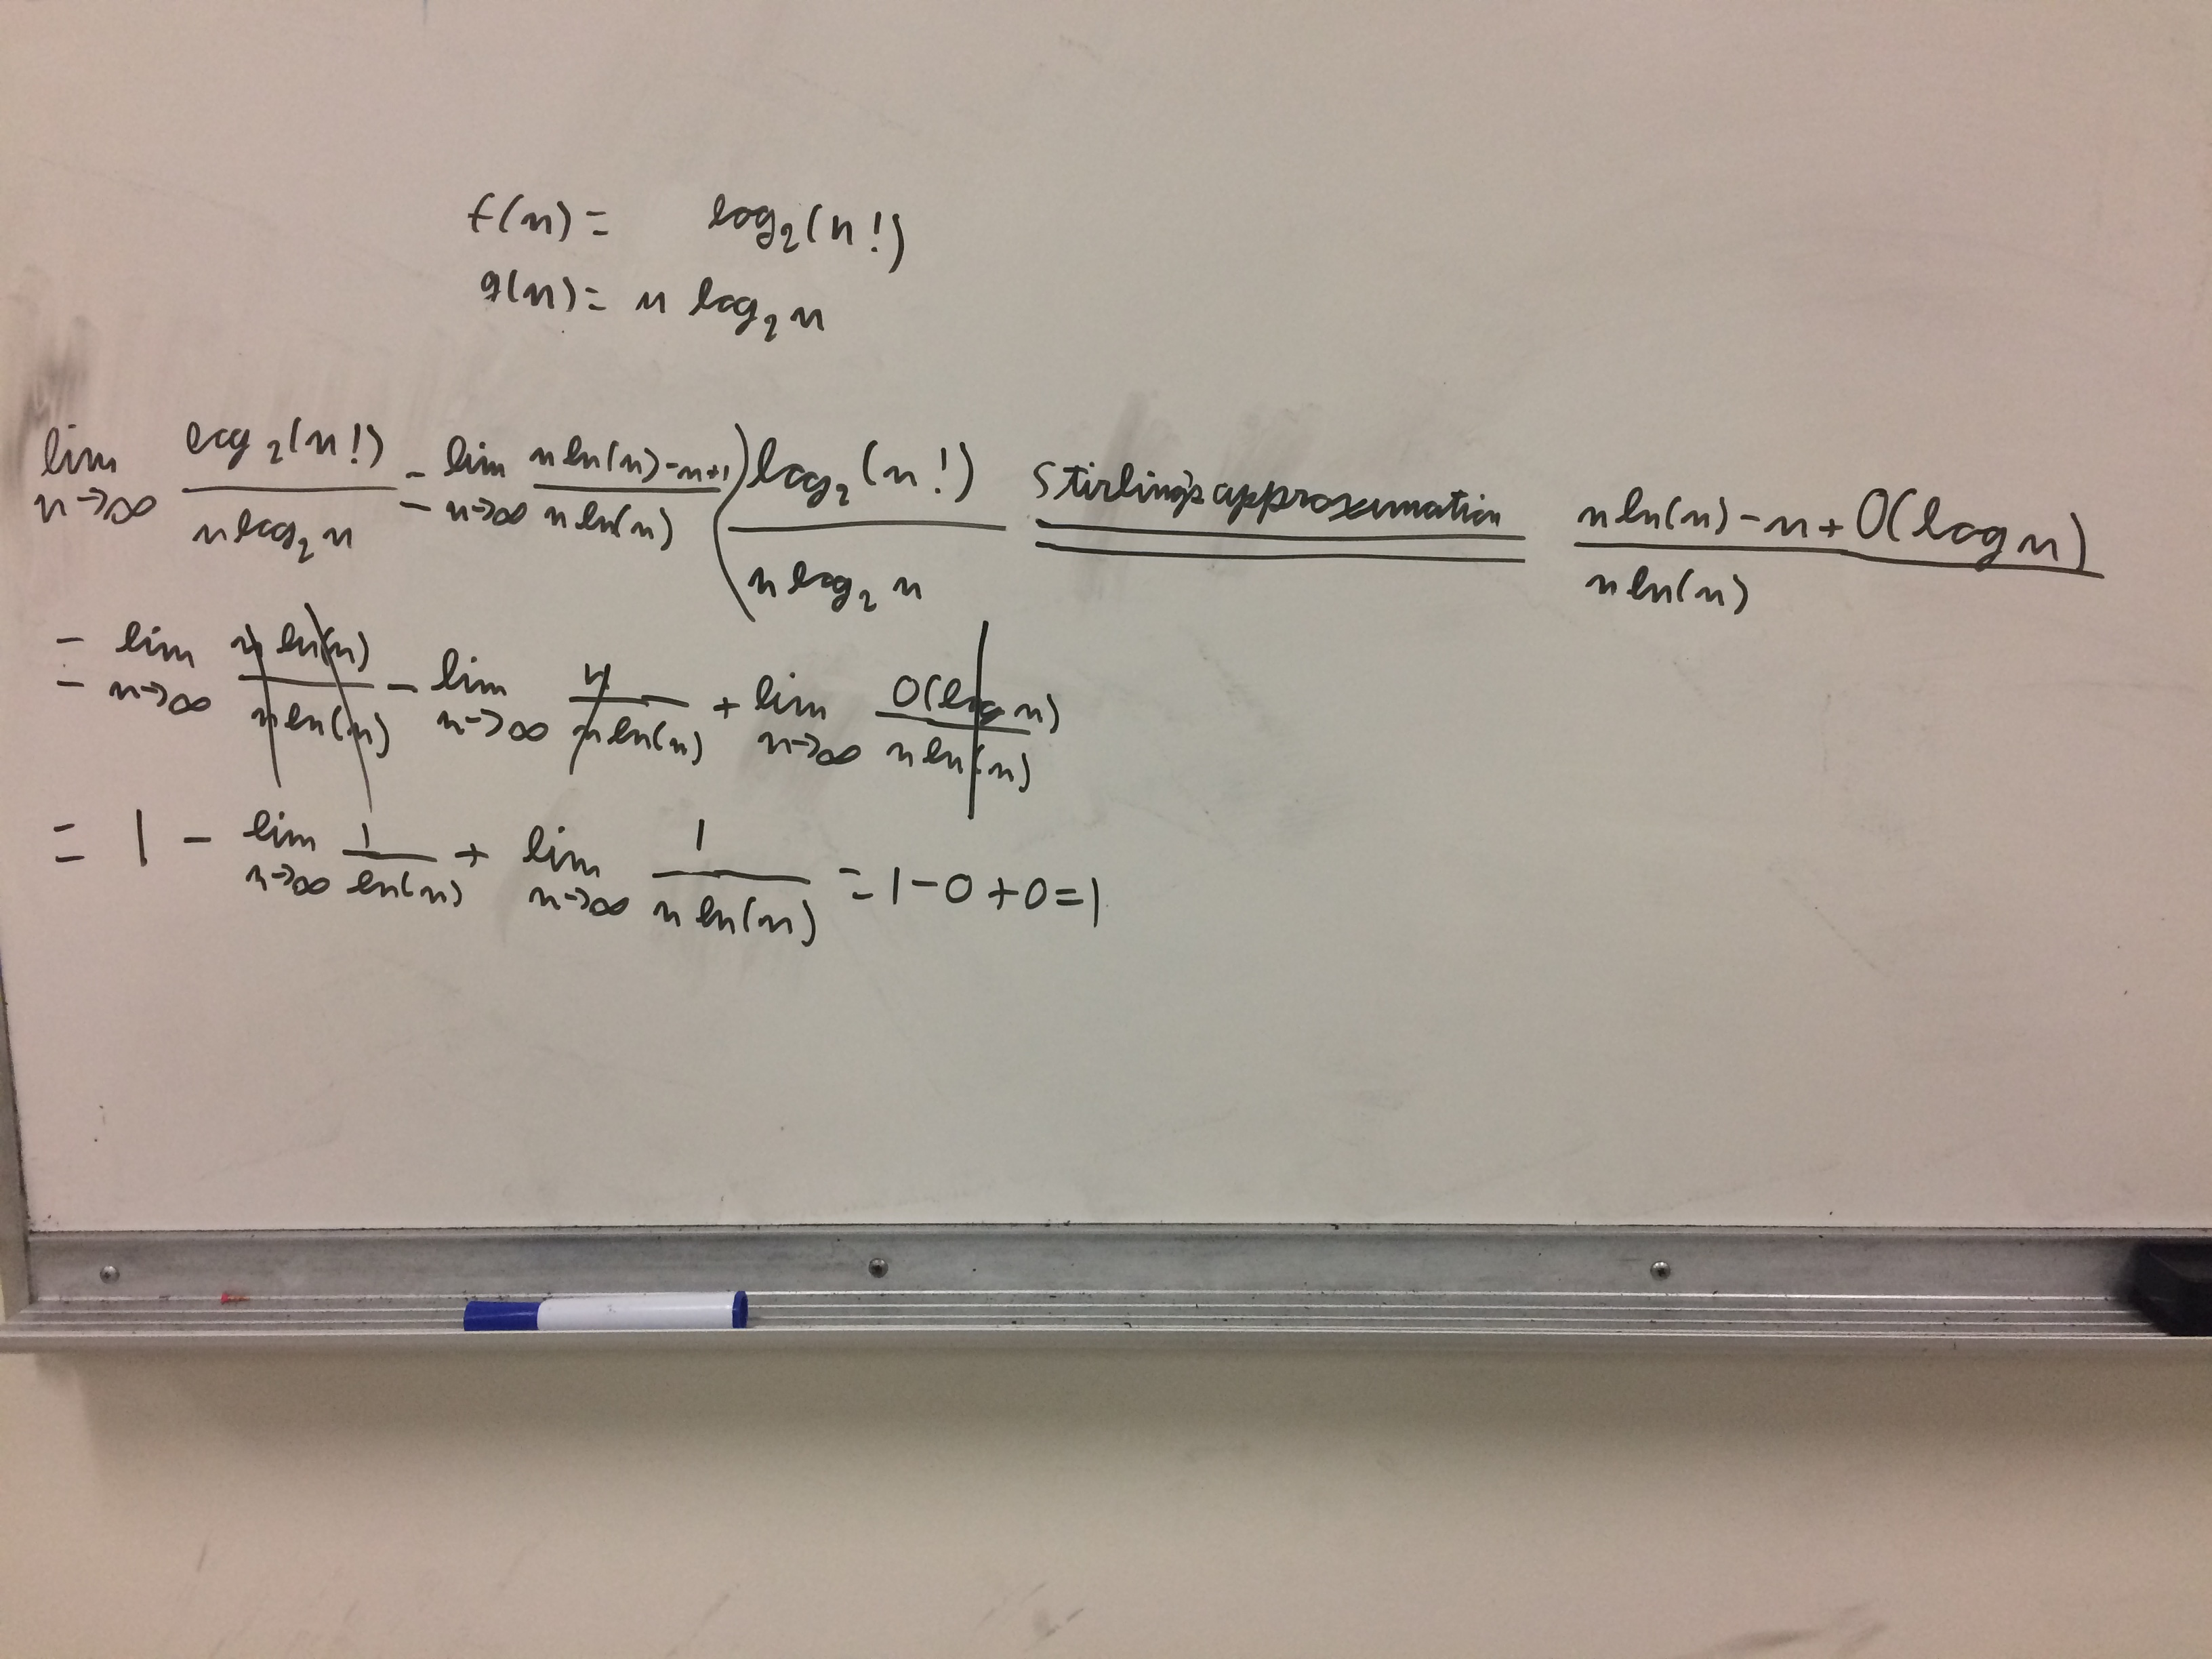 f(n) = log₂(n!)
g(n) = n log₂ n
lim n→∞ log₂(n!) / n log₂ n = lim n→∞ n ln(n) - n + 1 / n ln(n) ) ( log₂(n!) / n log₂ n Stirling's approximation n ln(n) - n + O(log n) / n ln(n)
= lim n→∞ n ln(n) / n ln(n) - lim n→∞ n / n ln(n) + lim n→∞ O(log n) / n ln(n)
= 1 - lim n→∞ 1 / ln(n) + lim n→∞ 1 / n ln(n) = 1 - 0 + 0 = 1